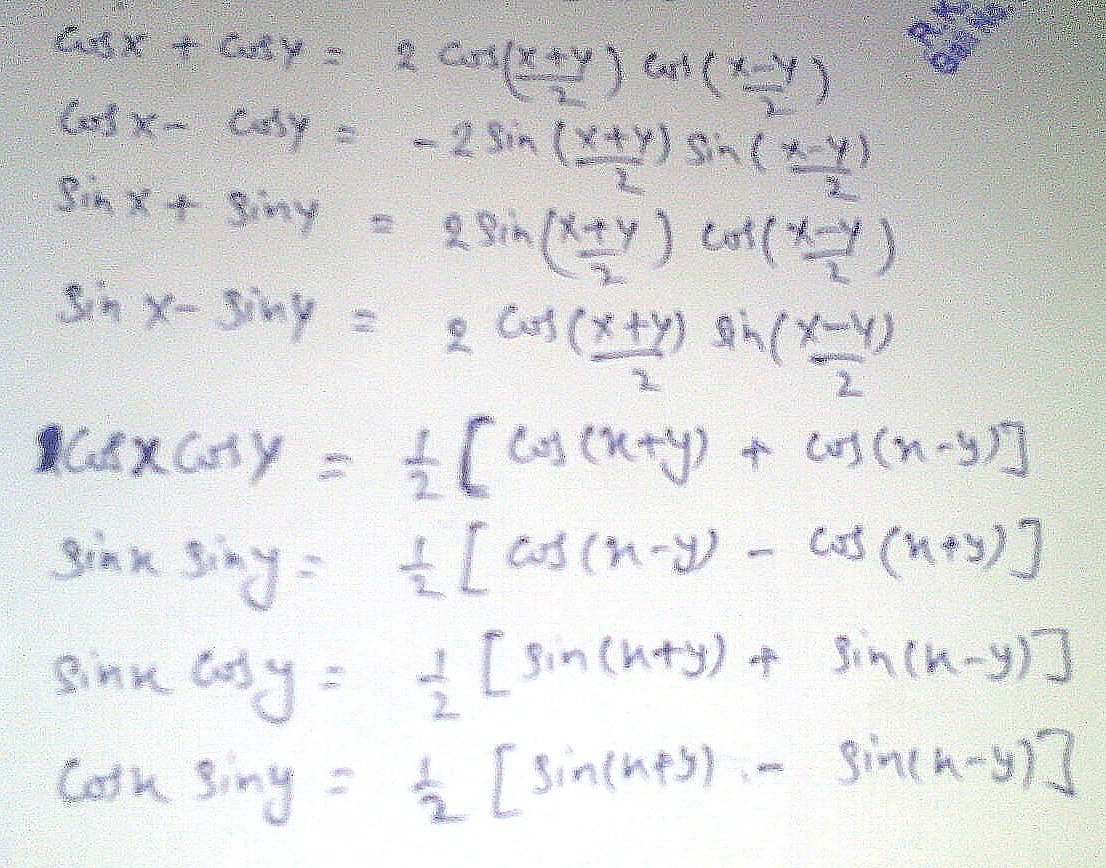 Cosx + Cosy = 2 Cos(x+y/2) Cos(x-y/2)
Cosx - Cosy = -2 Sin (x+y)/2 Sin (x-y)/2
Sin x + Siny = 2 Sin(x+y/2) Cos(x-y/2)
Sin x - Siny = 2 Cos (x+y)/2 Sin (x-y)/2
Cosx Cosy = 1/2 [Cos (x+y) + Cos (x-y)]
Sinx Siny = 1/2 [Cos (x-y) - Cos (x+y)]
Sinx Cosy = 1/2 [Sin (x+y) + Sin (x-y)]
Cosx Siny = 1/2 [Sin(x+y) - Sin(x-y)]